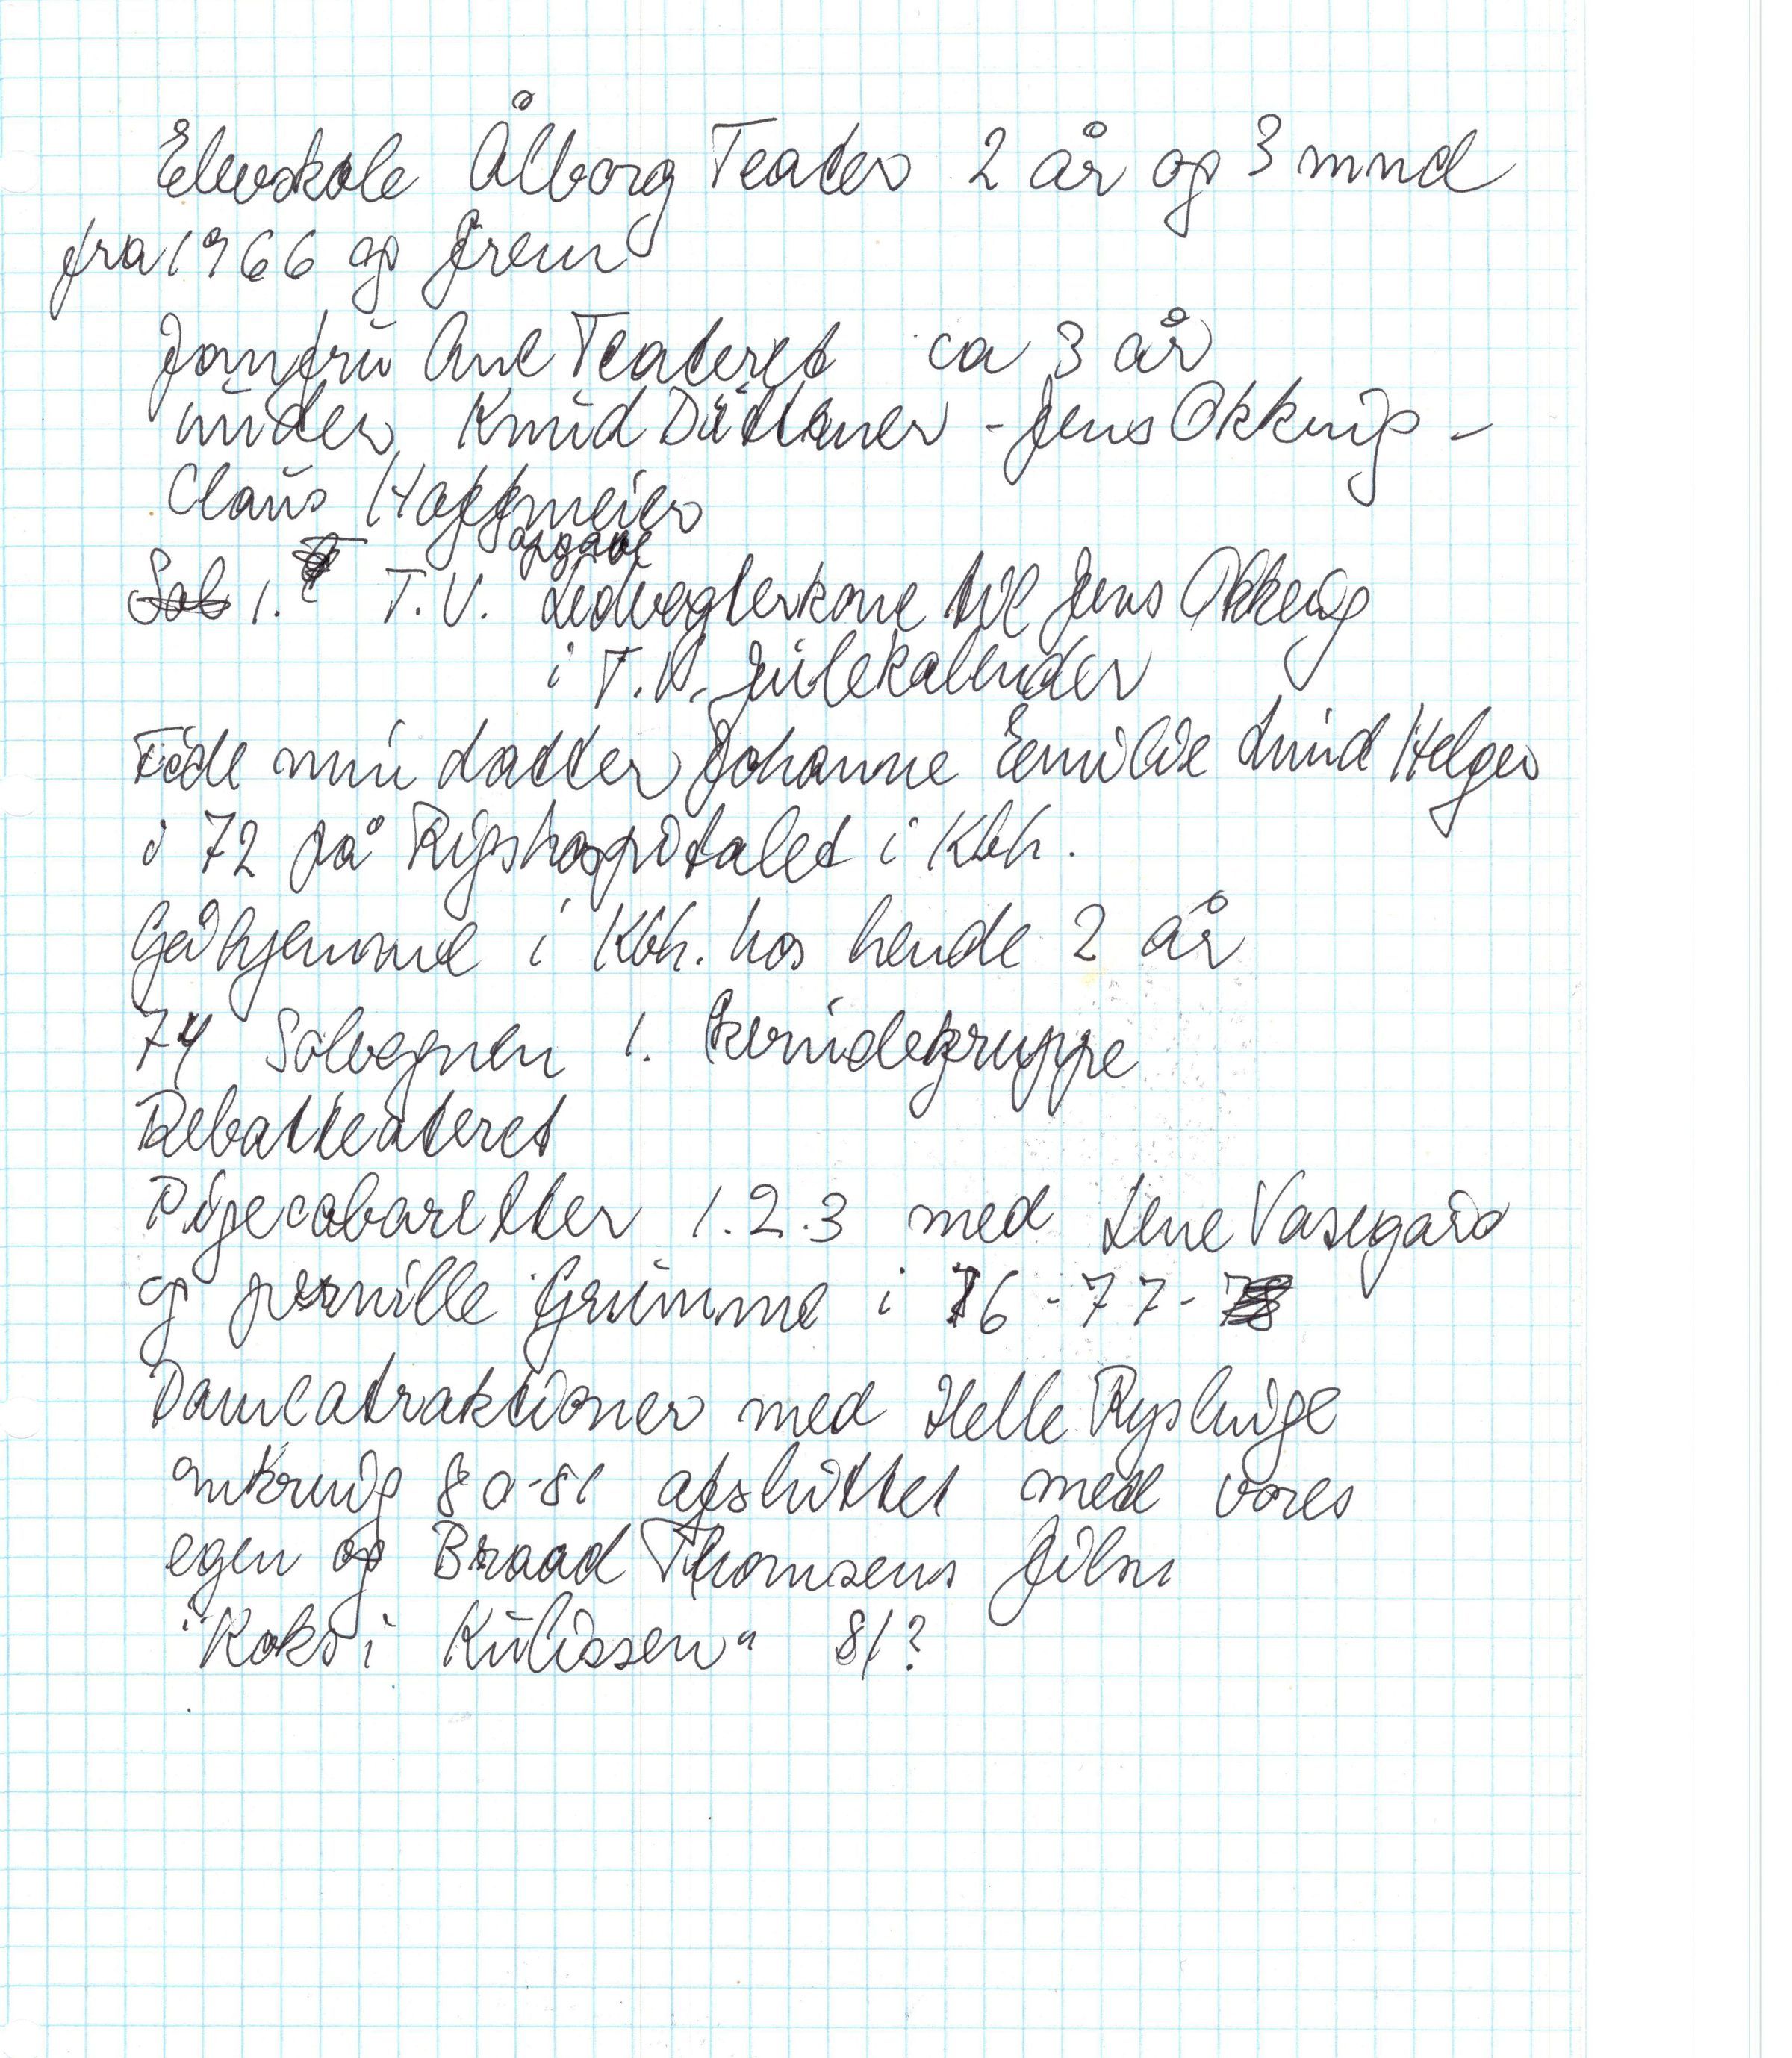 Elevskole Ålborg Teater 2 år og 3 mnd
fra 1966 og frem
Jomfru Ane Teateret ca 3 år
under Knud Dittmer - Jens Okking -
Claus Hoffmeier
opgave
1. T.V. Ledvogterkone til Jens Okking
i T.V. Julekalender
Føde min datter Johanne Emilie Lund Helger
i 72 på Rigshospitalet i Kbh.
Gik hjemme i Kbh. hos hende 2 år
74 Solvognen 1. kvindegruppe
Debatteateret
Pigecabaretter 1.2.3 med Lene Vasegard
og pernille Grumme i 76-77-78
Dameatraktioner med Helle Ryslinge
omkring 80-81 afsluttet med vores
egen og Braad Thomsens film
"Koks i Kulissen" 81?